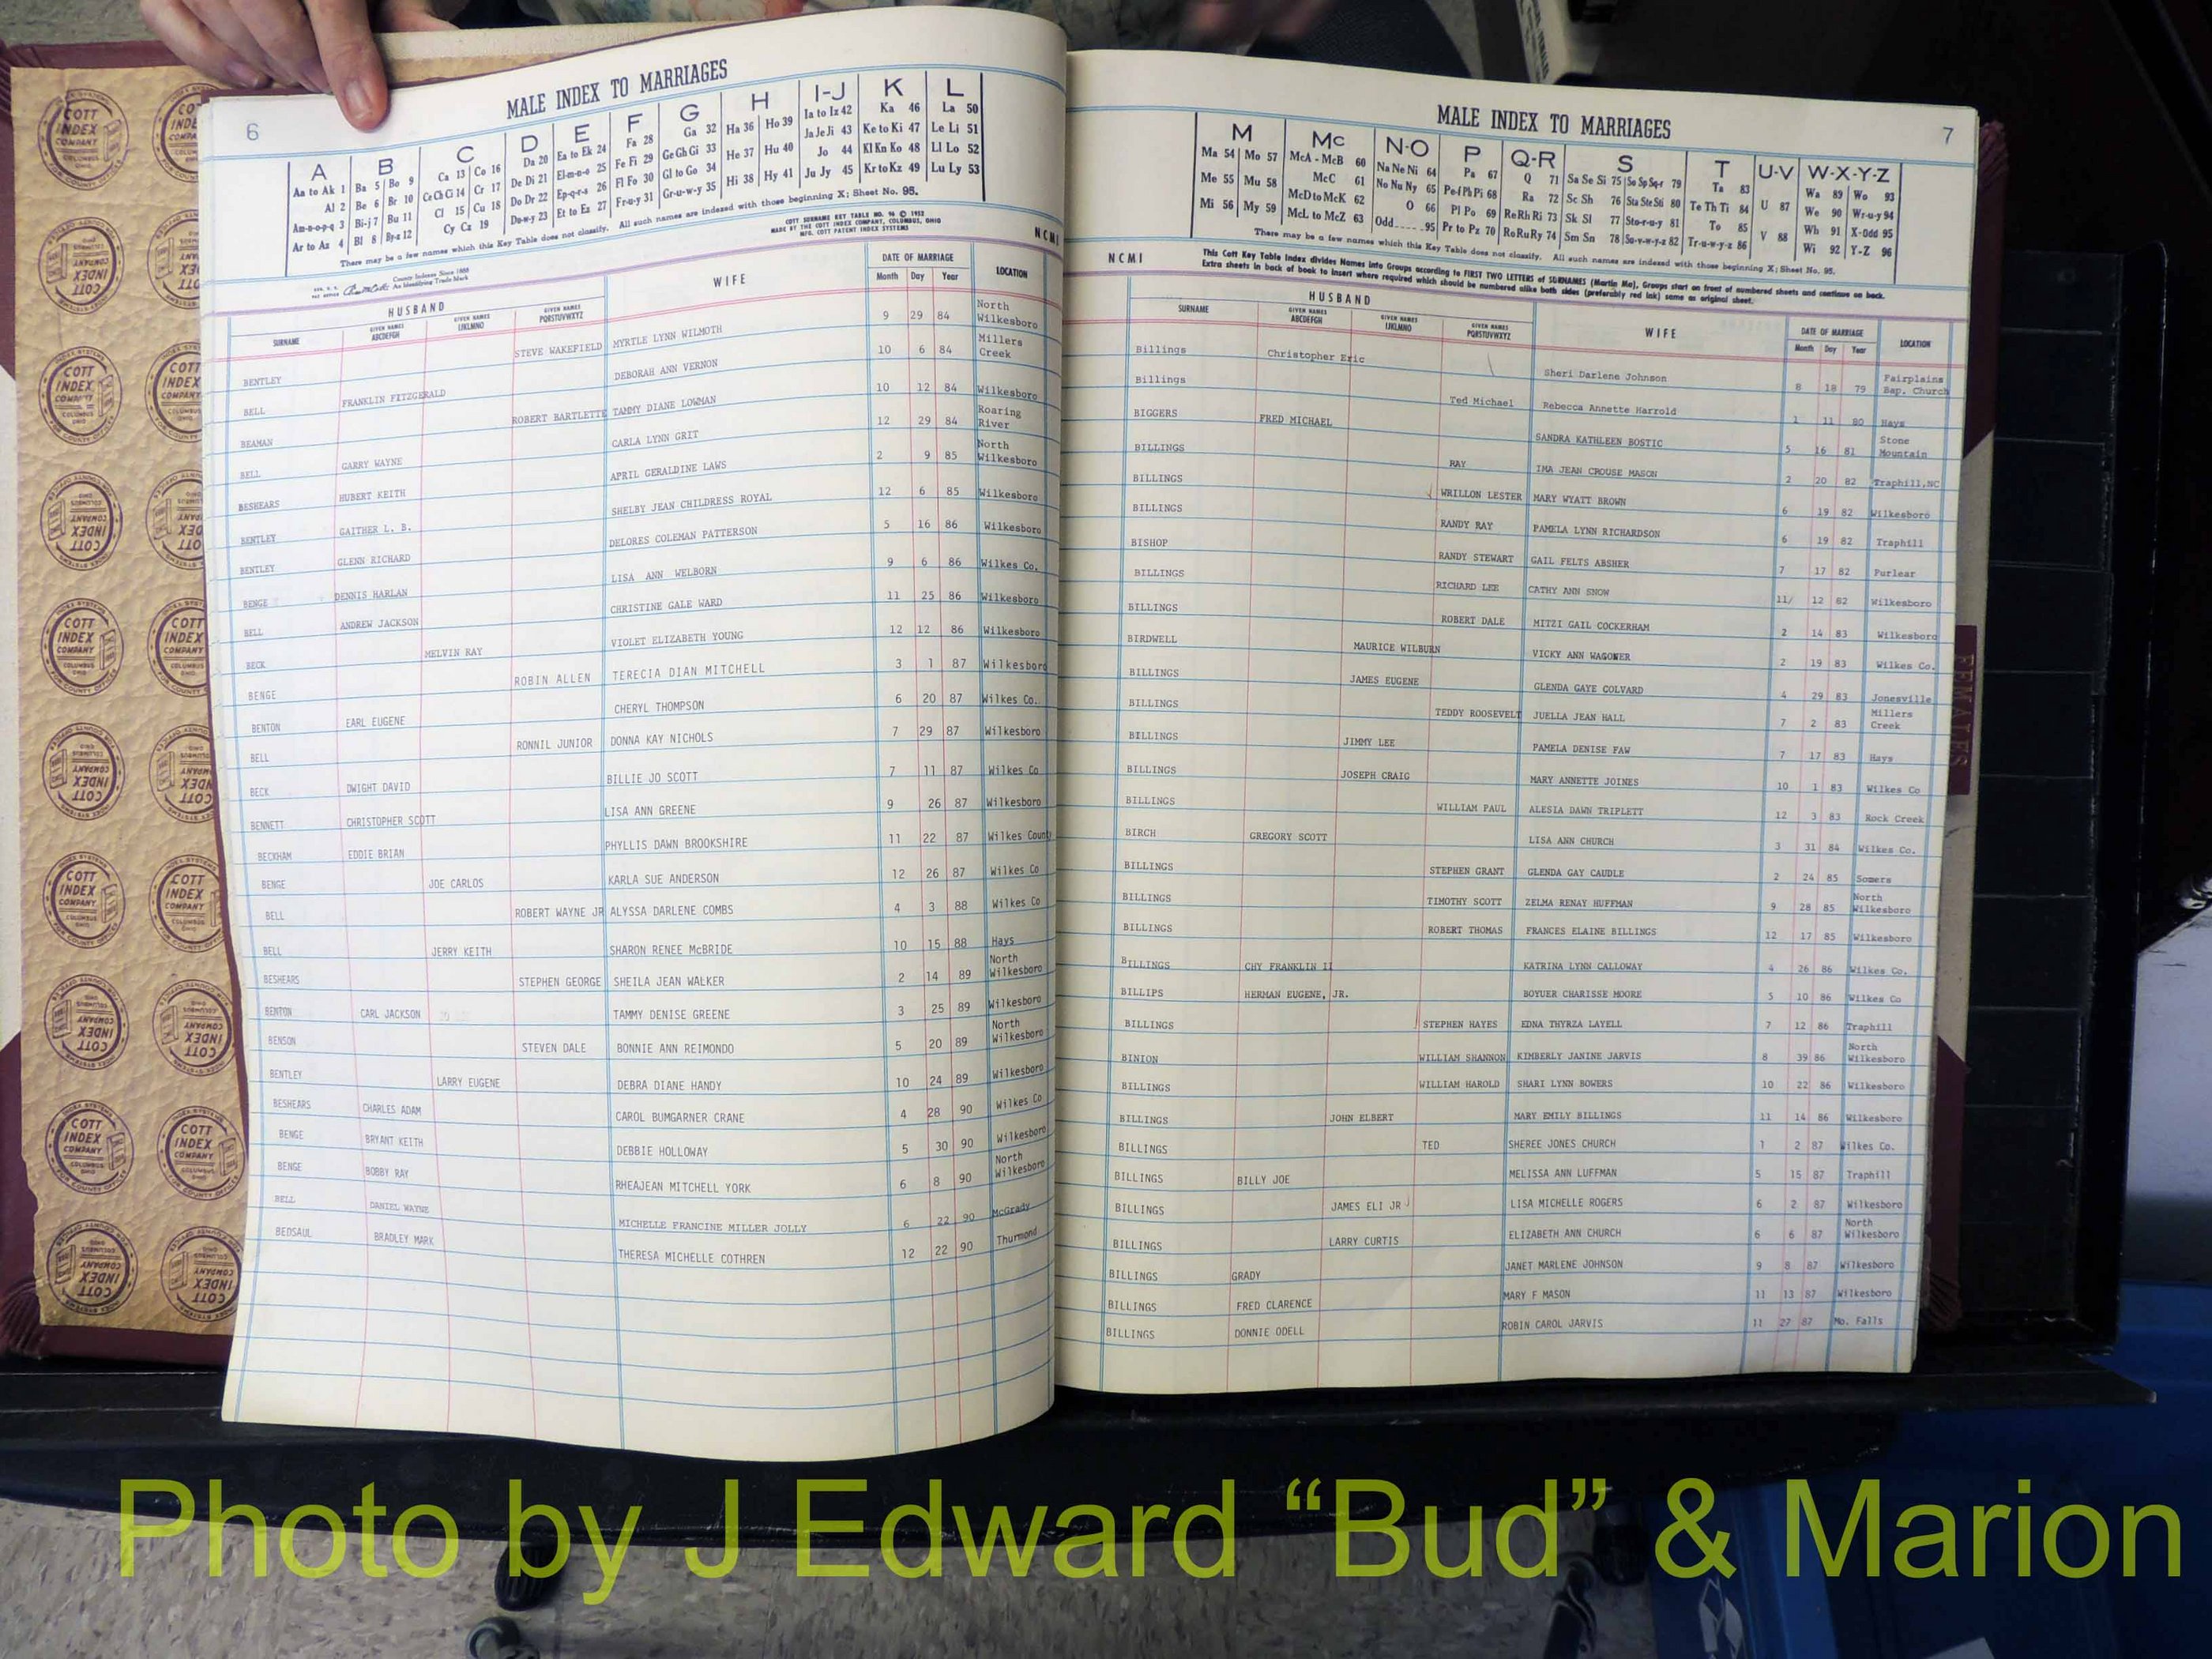 6
MALE INDEX TO MARRIAGES
A B C D E F G H I-J K L
Aa to Ak 1 Ba 5 Bo 9 Ca 13 Co 16 Da 20 Ea to Ek 24 Fa 28 Ga 32 Ha 36 Ho 39 Ia to Iz 42 Ka 46 La 50
Al 2 Be 6 Br 10 Ce Ch Ci 14 Cr 17 De Di 21 El-m-n-o 25 Fe Fi 29 Ge Gh Gi 33 He 37 Hu 40 Ja Je Ji 43 Ke to Ki 47 Le Li 51
Am-n-o-p-q 3 Bi-j 7 Bu 11 Cl 15 Cu 18 Do Dr 22 Ep-q-r-s 26 Fl Fo 30 Gl to Go 34 Hi 38 Hy 41 Jo 44 Kl Kn Ko 48 Ll Lo 52
Ar to Az 4 Bl 8 By-z 12 Cy Cz 19 Du-w-y 23 Et to Ez 27 Fr-u-y 31 Gr-u-w-y 35 Ju Jy 45 Kr to Kz 49 Lu Ly 53
There may be a few names which this Key Table does not classify. All such names are indexed with those beginning X; Sheet No. 95.
COTT SURNAME KEY TABLE NO. 96 © 1952
MADE BY THE COTT INDEX COMPANY, COLUMBUS, OHIO
MFG. COTT PATENT INDEX SYSTEMS
County Indexes Since 1888
An Identifying Trade Mark
NCMI
HUSBAND WIFE DATE OF MARRIAGE LOCATION
SURNAME GIVEN NAMES ABCDEFGH GIVEN NAMES IJKLMNO GIVEN NAMES PQRSTUVWXYZ Month Day Year
BENTLEY STEVE WAKEFIELD MYRTLE LYNN WILMOTH 9 29 84 North Wilkesboro
BELL FRANKLIN FITZGERALD DEBORAH ANN VERNON 10 6 84 Millers Creek
BEAMAN ROBERT BARTLETTE TAMMY DIANE LOWMAN 10 12 84 Wilkesboro
BELL GARRY WAYNE CARLA LYNN GRIT 12 29 84 Roaring River
BESHEARS HUBERT KEITH APRIL GERALDINE LAWS 2 9 85 North Wilkesboro
BENTLEY GAITHER L. B. SHELBY JEAN CHILDRESS ROYAL 12 6 85 Wilkesboro
BENTLEY GLENN RICHARD DELORES COLEMAN PATTERSON 5 16 86 Wilkesboro
BENGE DENNIS HARLAN LISA ANN WELBORN 9 6 86 Wilkes Co.
BELL ANDREW JACKSON CHRISTINE GALE WARD 11 25 86 Wilkesboro
BECK MELVIN RAY VIOLET ELIZABETH YOUNG 12 12 86 Wilkesboro
BENGE ROBIN ALLEN TERECIA DIAN MITCHELL 3 1 87 Wilkesboro
BENTON EARL EUGENE CHERYL THOMPSON 6 20 87 Wilkes Co.
BELL RONNIL JUNIOR DONNA KAY NICHOLS 7 29 87 Wilkesboro
BECK DWIGHT DAVID BILLIE JO SCOTT 7 11 87 Wilkes Co
BENNETT CHRISTOPHER SCOTT LISA ANN GREENE 9 26 87 Wilkesboro
BECKHAM EDDIE BRIAN PHYLLIS DAWN BROOKSHIRE 11 22 87 Wilkes County
BENGE JOE CARLOS KARLA SUE ANDERSON 12 26 87 Wilkes Co
BELL ROBERT WAYNE JR ALYSSA DARLENE COMBS 4 3 88 Wilkes Co
BELL JERRY KEITH SHARON RENEE McBRIDE 10 15 88 Hays
BESHEARS STEPHEN GEORGE SHEILA JEAN WALKER 2 14 89 North Wilkesboro
BENTON CARL JACKSON TAMMY DENISE GREENE 3 25 89 Wilkesboro
BENSON STEVEN DALE BONNIE ANN REIMONDO 5 20 89 North Wilkesboro
BENTLEY LARRY EUGENE DEBRA DIANE HANDY 10 24 89 Wilkesboro
BESHEARS CHARLES ADAM CAROL BUMGARNER CRANE 4 28 90 Wilkes Co
BENGE BRYANT KEITH DEBBIE HOLLOWAY 5 30 90 Wilkesboro
BENGE BOBBY RAY RHEAJEAN MITCHELL YORK 6 8 90 North Wilkesboro
BELL DANIEL WAYNE MICHELLE FRANCINE MILLER JOLLY 6 22 90 McGrady
BEDSAUL BRADLEY MARK THERESA MICHELLE COTHREN 12 22 90 Thurmond
7
MALE INDEX TO MARRIAGES
M Mc N-O P Q-R S T U-V W-X-Y-Z
Ma 54 Mo 57 McA - McB 60 Na Ne Ni 64 Pa 67 Q 71 Sa Se Si 75 So Sp Sq-r 79 Ta 83 U 87 Wa 89 Wo 93
Me 55 Mu 58 McC 61 No Nu Ny 65 Pe-f Ph Pi 68 Ra 72 Sc Sh 76 Sta Ste Sti 80 Te Th Ti 84 V 88 We 90 Wr-u-y 94
Mi 56 My 59 McD to McK 62 O 66 Pl Po 69 Re Rh Ri 73 Sk Sl 77 Sto-r-u-y 81 To 85 Wh 91 X-Odd 95
McL to McZ 63 Odd 95 Pr to Pz 70 Ro Ru Ry 74 Sm Sn 78 Su-v-w-y-z 82 Tr-u-w-y-z 86 Wi 92 Y-Z 96
There may be a few names which this Key Table does not classify. All such names are indexed with those beginning X; Sheet No. 95.
NCMI
This Cott Key Table Index divides Names into Groups according to FIRST TWO LETTERS of SURNAMES (Martin Ma), Groups start on front of numbered sheets and continue on back.
Extra sheets in back of book to insert where required which should be numbered alike both sides (preferably red ink) same as original sheet.
HUSBAND WIFE DATE OF MARRIAGE LOCATION
SURNAME GIVEN NAMES ABCDEFGH GIVEN NAMES IJKLMNO GIVEN NAMES PQRSTUVWXYZ Month Day Year
Billings Christopher Eric Sheri Darlene Johnson 8 18 79 Fairplains Bap. Church
Billings Ted Michael Rebecca Annette Harrold 1 11 80 Hays
BIGGERS FRED MICHAEL SANDRA KATHLEEN BOSTIC 5 16 81 Stone Mountain
BILLINGS RAY IMA JEAN CROUSE MASON 2 20 82 Traphill,NC
BILLINGS WRILLON LESTER MARY WYATT BROWN 6 19 82 Wilkesboro
BILLINGS RANDY RAY PAMELA LYNN RICHARDSON 6 19 82 Traphill
BISHOP RANDY STEWART GAIL FELTS ABSHER 7 17 82 Purlear
BILLINGS RICHARD LEE CATHY ANN SNOW 11/ 12 82 Wilkesboro
BILLINGS ROBERT DALE MITZI GAIL COCKERHAM 2 14 83 Wilkesboro
BIRDWELL MAURICE WILBURN VICKY ANN WAGONER 2 19 83 Wilkes Co.
BILLINGS JAMES EUGENE GLENDA GAYE COLVARD 4 29 83 Jonesville
BILLINGS TEDDY ROOSEVELT JUELLA JEAN HALL 7 2 83 Millers Creek
BILLINGS JIMMY LEE PAMELA DENISE FAW 7 17 83 Hays
BILLINGS JOSEPH CRAIG MARY ANNETTE JOINES 10 1 83 Wilkes Co
BILLINGS WILLIAM PAUL ALESIA DAWN TRIPLETT 12 3 83 Rock Creek
BIRCH GREGORY SCOTT LISA ANN CHURCH 3 31 84 Wilkes Co.
BILLINGS STEPHEN GRANT GLENDA GAY CAUDLE 2 24 85 Somers
BILLINGS TIMOTHY SCOTT ZELMA RENAY HUFFMAN 9 28 85 North Wilkesboro
BILLINGS ROBERT THOMAS FRANCES ELAINE BILLINGS 12 17 85 Wilkesboro
BILLINGS CHY FRANKLIN II KATRINA LYNN CALLOWAY 4 26 86 Wilkes Co.
BILLIPS HERMAN EUGENE, JR. BOYUER CHARISSE MOORE 5 10 86 Wilkes Co
BILLINGS STEPHEN HAYES EDNA THYRZA LAYELL 7 12 86 Traphill
BINION WILLIAM SHANNON KIMBERLY JANINE JARVIS 8 39 86 North Wilkesboro
BILLINGS WILLIAM HAROLD SHARI LYNN BOWERS 10 22 86 Wilkesboro
BILLINGS JOHN ELBERT MARY EMILY BILLINGS 11 14 86 Wilkesboro
BILLINGS TED SHEREE JONES CHURCH 1 2 87 Wilkes Co.
BILLINGS BILLY JOE MELISSA ANN LUFFMAN 5 15 87 Traphill
BILLINGS JAMES ELI JR LISA MICHELLE ROGERS 6 2 87 Wilkesboro
BILLINGS LARRY CURTIS ELIZABETH ANN CHURCH 6 6 87 North Wilkesboro
BILLINGS GRADY JANET MARLENE JOHNSON 9 8 87 Wilkesboro
BILLINGS FRED CLARENCE MARY F MASON 11 13 87 Wilkesboro
BILLINGS DONNIE ODELL ROBIN CAROL JARVIS 11 27 87 Mo. Falls
COTT INDEX COMPANY
FEMALES
Photo by J Edward “Bud” & Marion